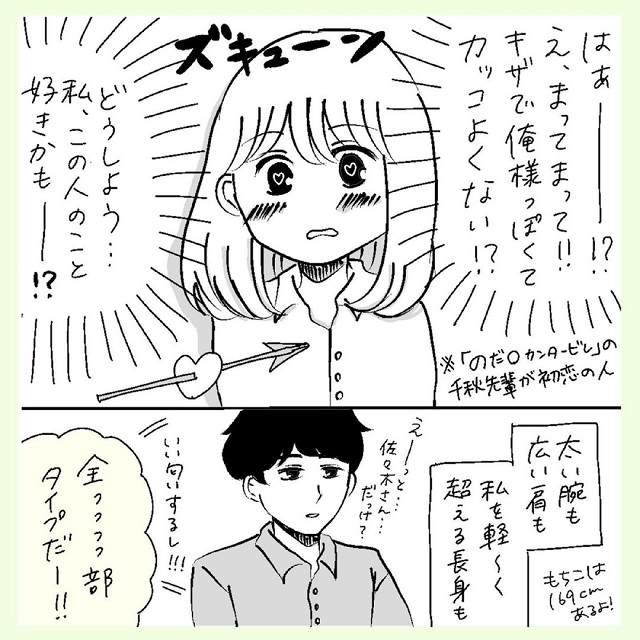 はぁーーー!?
え、まってまって!!
キザで俺様っぽくて
カッコよくない!?
ズキューン
どうしよう…
私、この人のこと
好きかもーー!?
※「のだ〇カンタービレ」の
千秋先輩が初恋の人
太い腕も
広い肩も
私を軽〜く
超える長身も
もちこは
169cm
あるよ!
えーっと…
佐々木さん…
だっけ?
いい匂いするし!!!
全っっっっ部
タイプだー!!